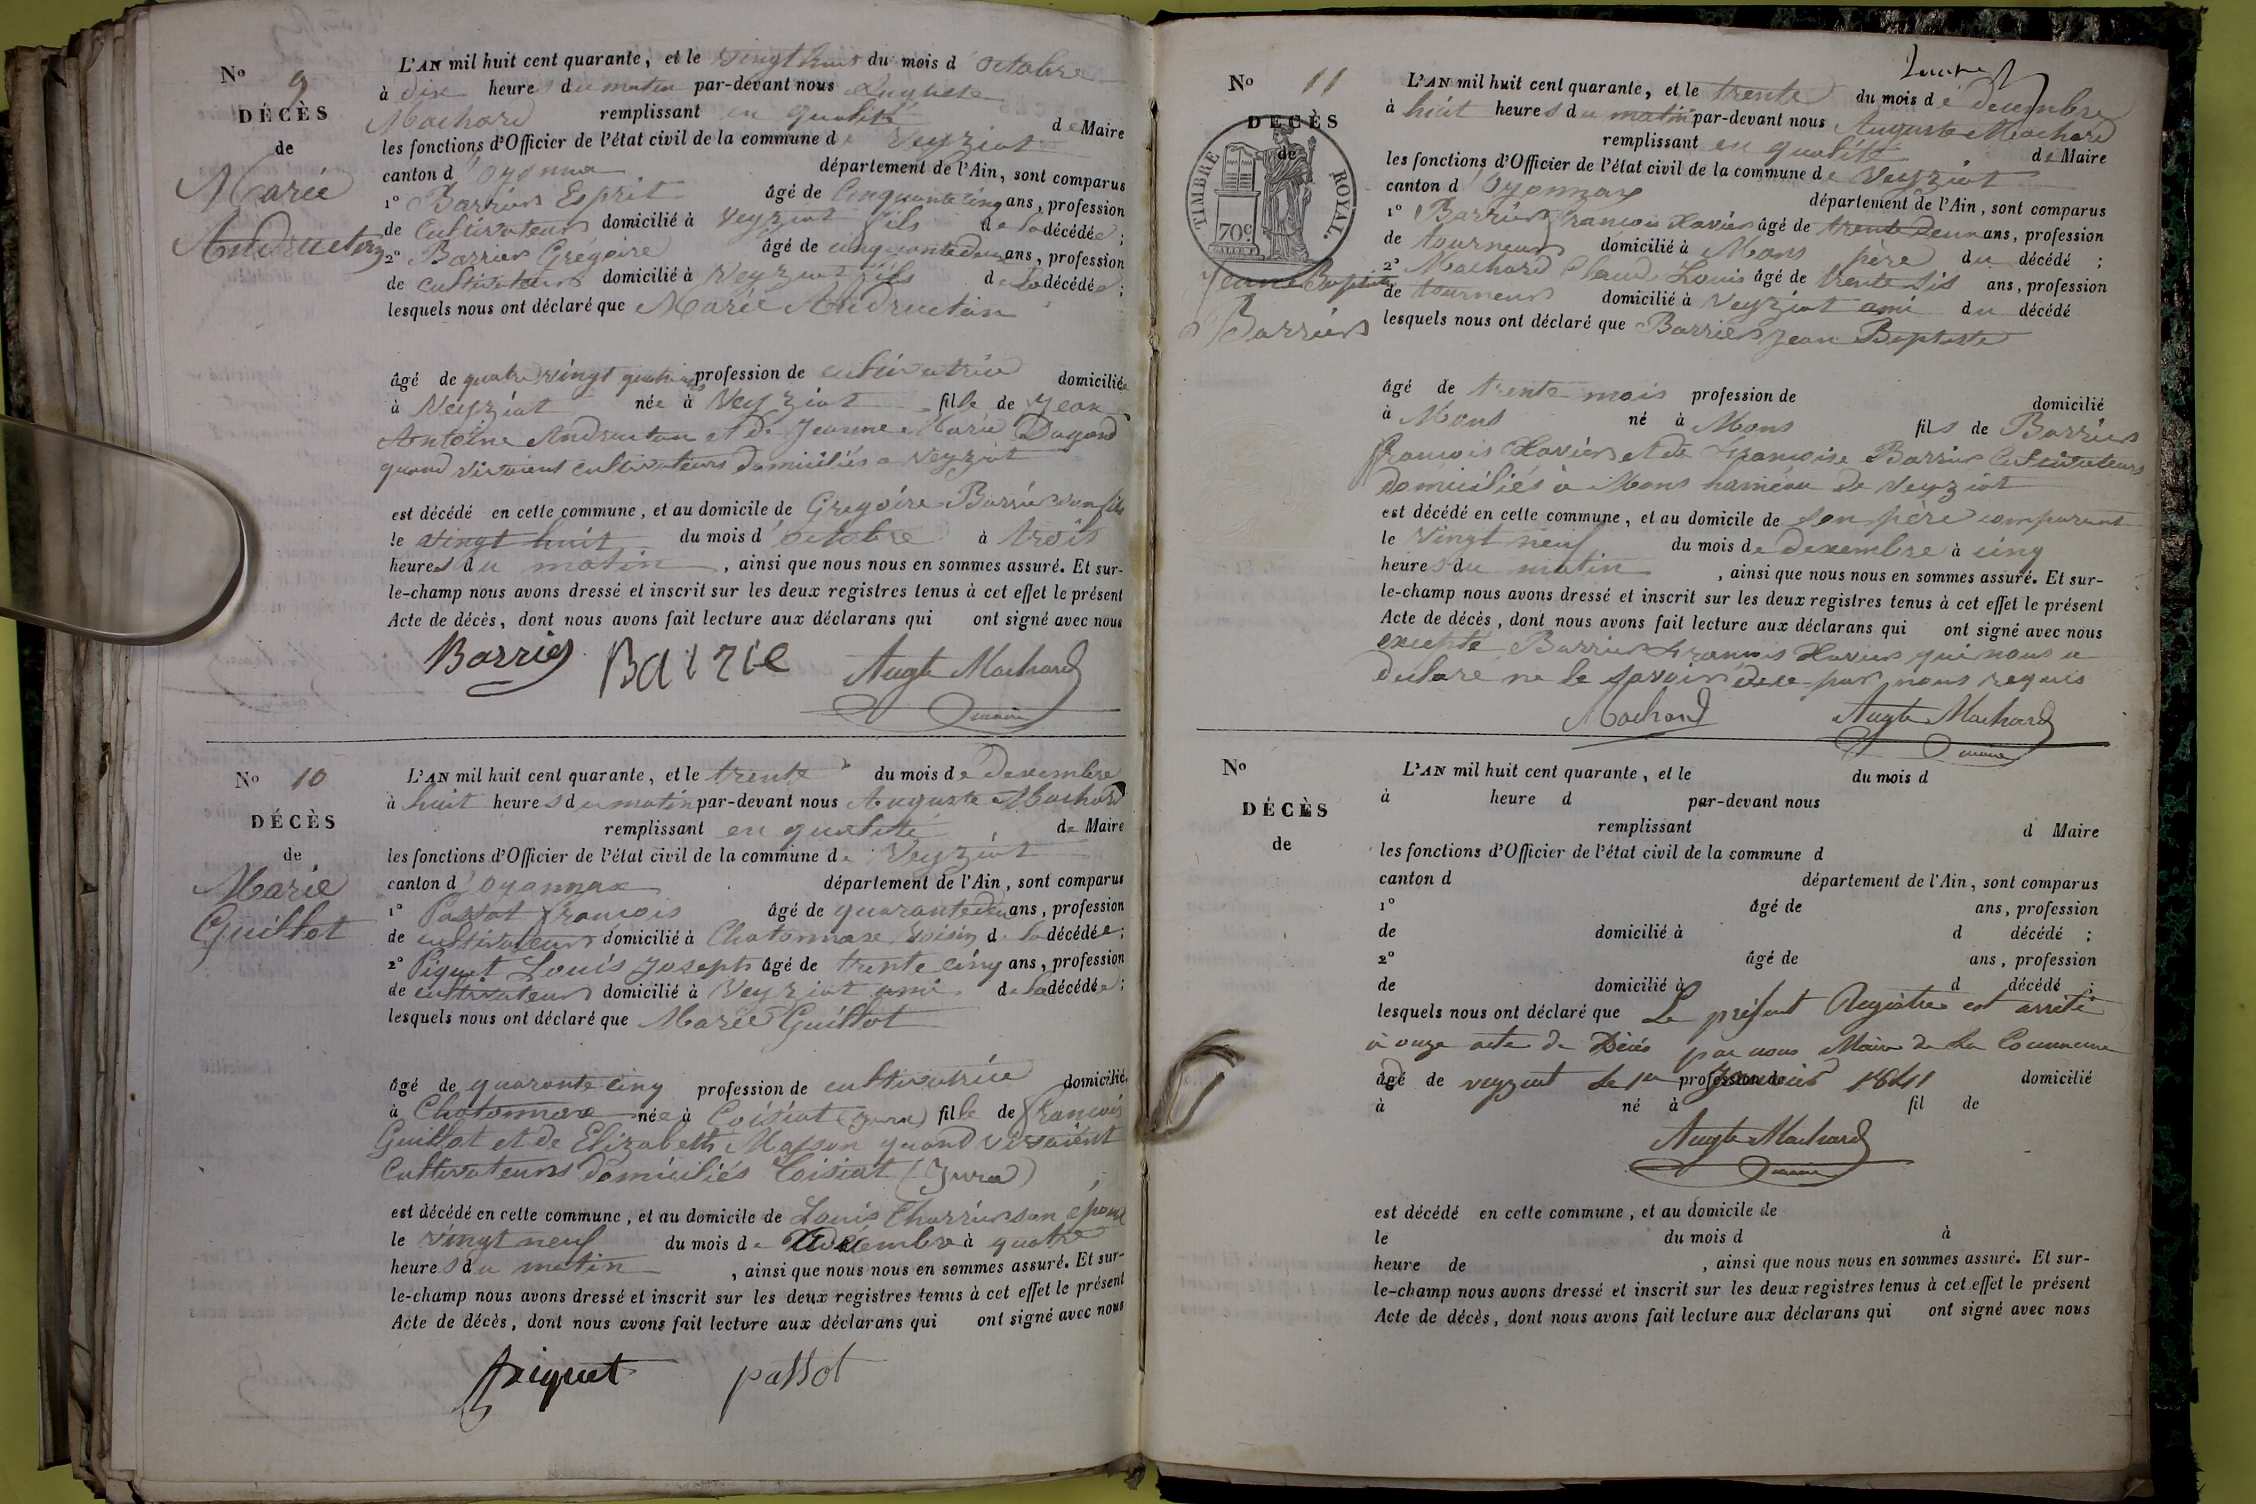 N° 9
DÉCÈS
de
Marie
Andruetan
L'AN mil huit cent quarante, et le vingt huit du mois d'octobre
à dix heures du matin par-devant nous Auguste
Machard remplissant en qualité de Maire
les fonctions d'Officier de l'état civil de la commune de Veyziat
canton d'Oyonnax département de l'Ain, sont comparus
1° Barrier Esprit âgé de cinquante cinq ans, profession
de cultivateur domicilié à Veyziat fils de la décédée;
2° Barrier Grégoire âgé de cinquante deux ans, profession
de cultivateur domicilié à Veyziat fils de la décédée;
lesquels nous ont déclaré que Marie Andruetan
âgé de quatre vingt quatre ans profession de cultivatrice domiciliée
à Veyziat née à Veyziat fille de Jean
Antoine Andruetan et de Jeanne Marie Dagond
quand vivaient cultivateurs domiciliés a Veyziat
est décédé en cette commune, et au domicile de Grégoire Barrier son fils
le vingt huit du mois d'octobre à trois
heures du matin, ainsi que nous nous en sommes assuré. Et sur-
le-champ nous avons dressé et inscrit sur les deux registres tenus à cet effet le présent
Acte de décès, dont nous avons fait lecture aux déclarans qui ont signé avec nous
Barrier Barrie Augte Machard
maire
N° 10
DÉCÈS
de
Marie
Guillot
L'AN mil huit cent quarante, et le trente du mois de décembre
à huit heures du matin par-devant nous Auguste Machard
remplissant en qualité de Maire
les fonctions d'Officier de l'état civil de la commune de Veyziat
canton d'oyonnax département de l'Ain, sont comparus
1° Passot françois âgé de quarante deux ans, profession
de cultivateur domicilié à Chatonnax voisin de la décédée;
2° Piquet Louis Joseph âgé de trente cinq ans, profession
de cultivateur domicilié à Veyziat ami de la décédée;
lesquels nous ont déclaré que Marie Guillot
âgé de quarante cinq profession de cultivatrice domicilié
à Chatonnax née à Coisiat (Jura) fille de françois
Guillot et de Elizabeth Masson quand vivaient
cultivateurs domiciliés Coisiat (Jura)
est décédé en cette commune, et au domicile de Louis Charrier son époux
le vingt neuf du mois de décembre à quatre
heures du matin, ainsi que nous nous en sommes assuré. Et sur-
le-champ nous avons dressé et inscrit sur les deux registres tenus à cet effet le présent
Acte de décès, dont nous avons fait lecture aux déclarans qui ont signé avec nous
piquet passot
N° 11
DÉCÈS
de
TIMBRE ROYAL.
70c
Jean Baptiste
Barrier
L'AN mil huit cent quarante, et le trente du mois de décembre
à huit heures du matin par-devant nous Auguste Machard
remplissant en qualité de Maire
les fonctions d'Officier de l'état civil de la commune de Veyziat
canton d'Oyonnax département de l'Ain, sont comparus
1° Barrier françois Xavier âgé de trente deux ans, profession
de tourneur domicilié à Mons père du décédé;
2° Machard Claude Louis âgé de trente six ans, profession
de tourneur domicilié à Veyziat ami du décédé
lesquels nous ont déclaré que Barrier Jean Baptiste
âgé de trente mois profession de domicilié
à Mons né à Mons fils de Barrier
françois Xavier et de françoise Barrier Cultivateurs
domiciliés à Mons hameau de Veyziat
est décédé en cette commune, et au domicile de son père comparant
le vingt neuf du mois de décembre à cinq
heures du matin, ainsi que nous nous en sommes assuré. Et sur-
le-champ nous avons dressé et inscrit sur les deux registres tenus à cet effet le présent
Acte de décès, dont nous avons fait lecture aux déclarans qui ont signé avec nous
excepté Barrier françois Xavier qui nous a
déclaré ne le savoir par nous requis
Machard Augte Machard
maire
N°
DÉCÈS
de
L'AN mil huit cent quarante, et le du mois d
à heure d par-devant nous
remplissant d Maire
les fonctions d'Officier de l'état civil de la commune d
canton d département de l'Ain, sont comparus
1° âgé de ans, profession
de domicilié à d décédé;
2° âgé de ans, profession
de domicilié à d décédé;
lesquels nous ont déclaré que Le présent Registre est arrêté
à onze acte de Décès par nous Maire de la Commune
âgé de veyziat le 1er profession de Janvier 1841 domicilié
à né à fil de
Augte Machard
maire
est décédé en cette commune, et au domicile de
le du mois d à
heure de, ainsi que nous nous en sommes assuré. Et sur-
le-champ nous avons dressé et inscrit sur les deux registres tenus à cet effet le présent
Acte de décès, dont nous avons fait lecture aux déclarans qui ont signé avec nous